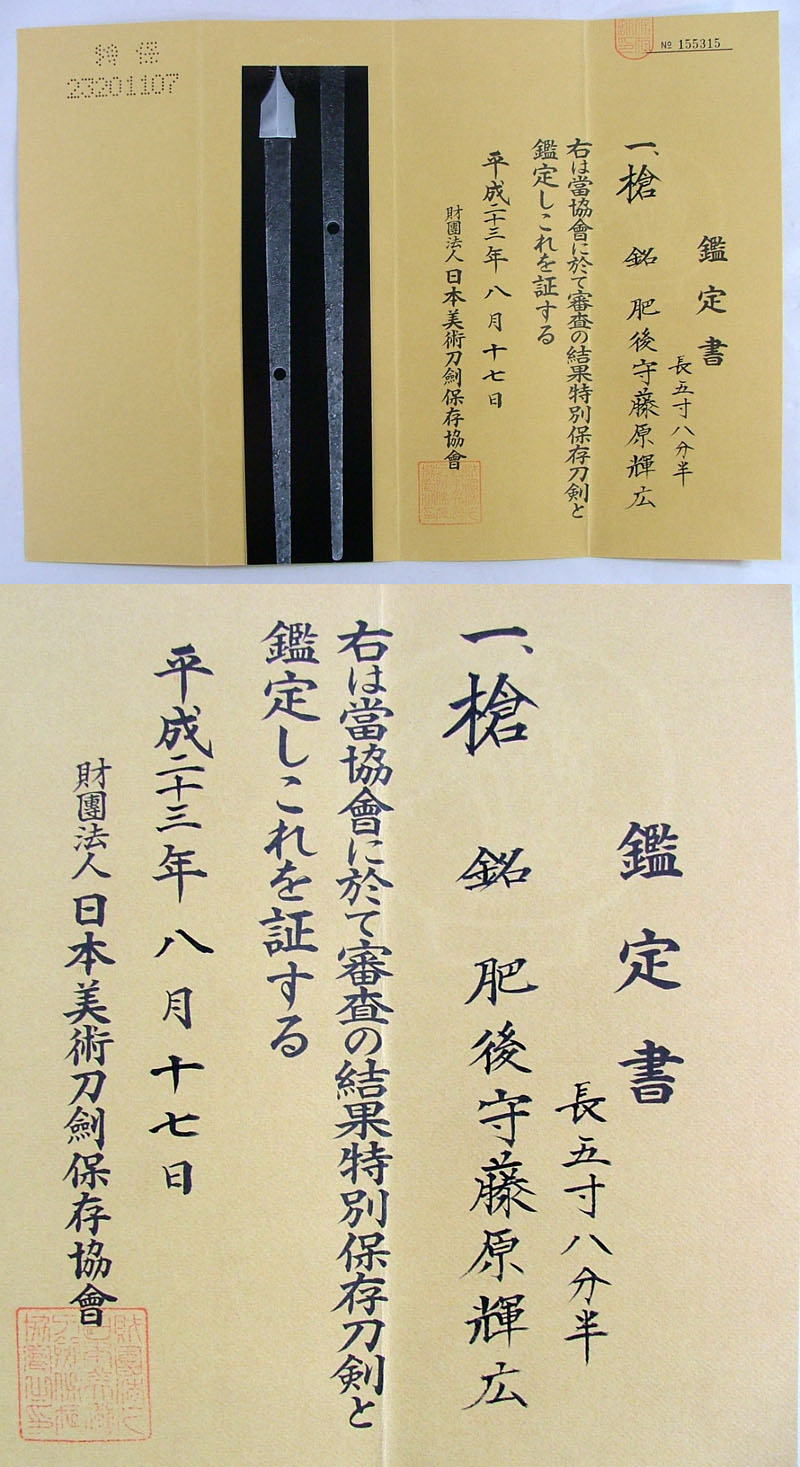 特保
23201107
№ 155315
鑑定書
長五寸八分半
一、槍 銘 肥後守藤原輝広
右は當協會に於て審査の結果特別保存刀剣と
鑑定しこれを証する
平成二十三年八月十七日
財團法人 日本美術刀劍保存協會
鑑定書
長五寸八分半
一、槍 銘 肥後守藤原輝広
右は當協會に於て審査の結果特別保存刀剣と
鑑定しこれを証する
平成二十三年八月十七日
財團法人 日本美術刀劍保存協會